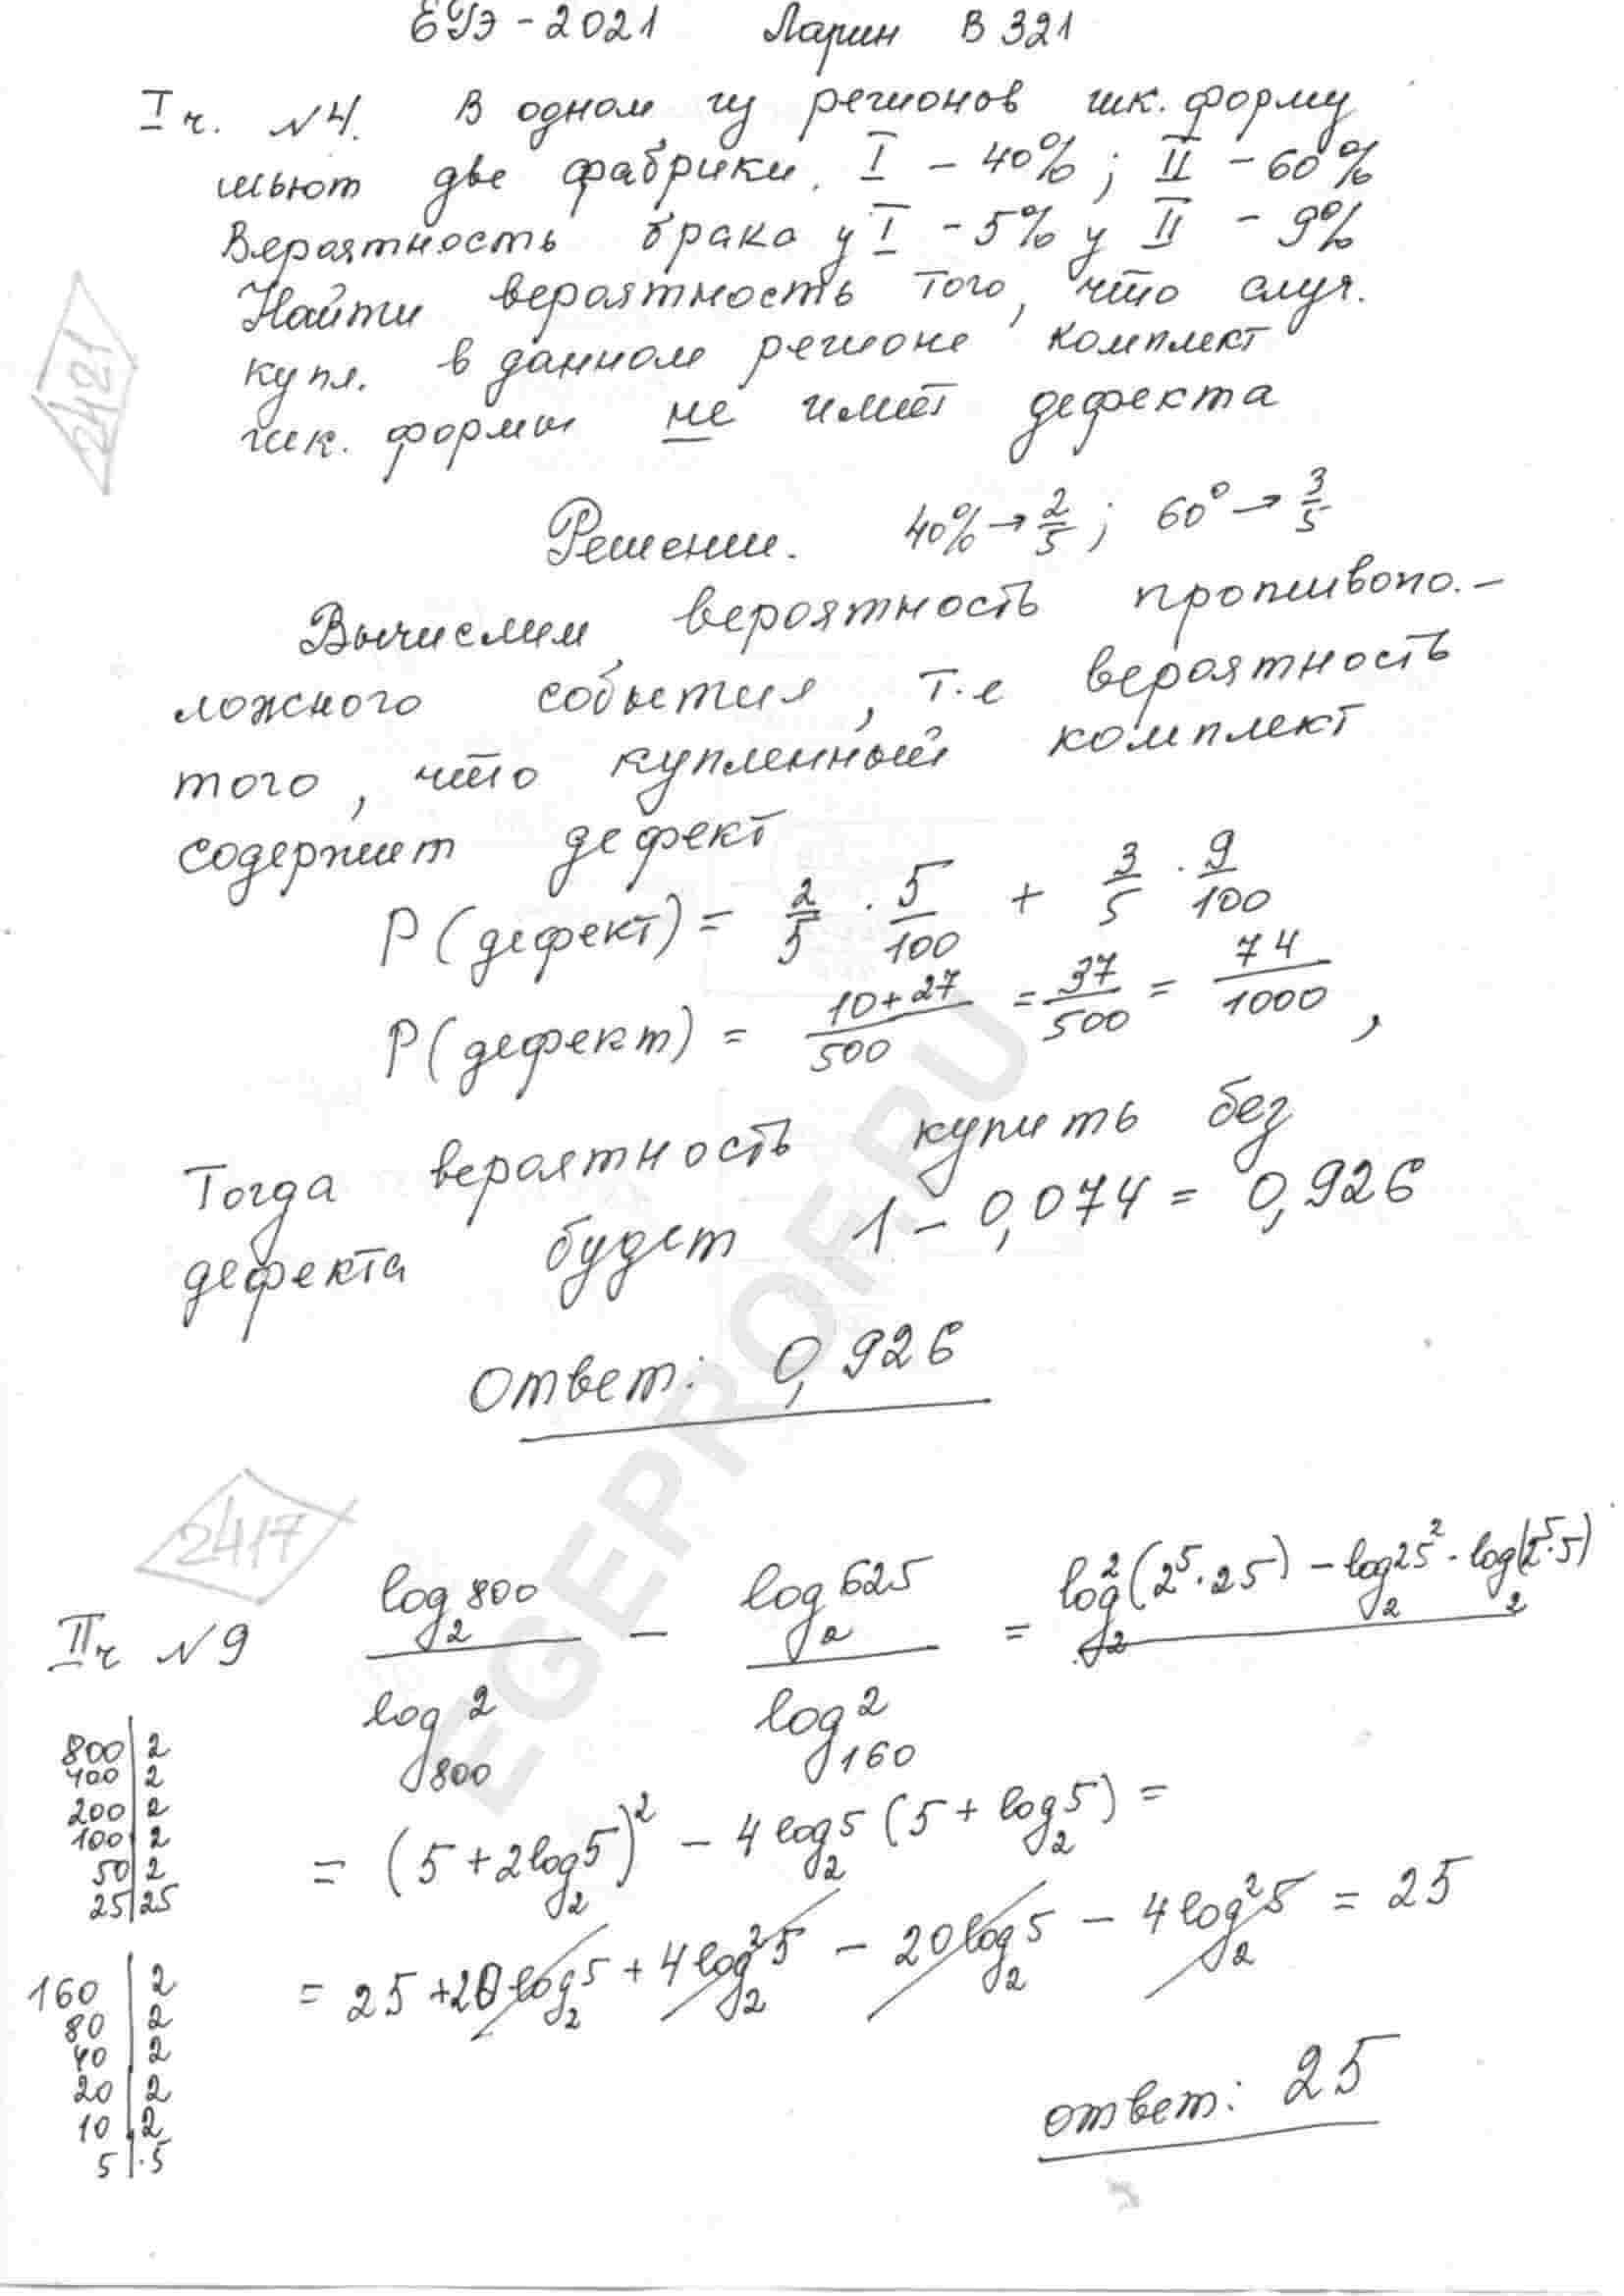 ЕГЭ - 2021 Ларин В 321
I ч. №4. В одном из регионов шк. форму
шьют две фабрики. I - 40%; II - 60%
Вероятность брака у I - 5% у II - 9%
Найти вероятность того, что случ.
купл. в данном регионе комплект
шк. формы не имеет дефекта
2421
Решение. 40% → 2/5; 60° → 3/5
Вычислим вероятность противопо.-
ложного события, т.е вероятность
того, что купленный комплект
содержит дефект
P(дефект) = 2/5 · 5/100 + 3/5 · 9/100
P(дефект) = (10+27)/500 = 37/500 = 74/1000,
Тогда вероятность купить без
дефекта будет 1 - 0,074 = 0,926
Ответ: 0,926
EGEPROF.RU
2417
II ч №9 log₂800/log₈₀₀2 - log₂625/log₁₆₀2 = log₂²(2⁵·25) - log₂25² · log₂(2⁵·5)
= (5 + 2log₂5)² - 4log₂5 (5 + log₂5) =
= 25 + 20log₂5 + 4log₂²5 - 20log₂5 - 4log₂²5 = 25
800|2
400|2
200|2
100|2
50|2
25|25
160|2
80|2
40|2
20|2
10|2
5|5
ответ: 25